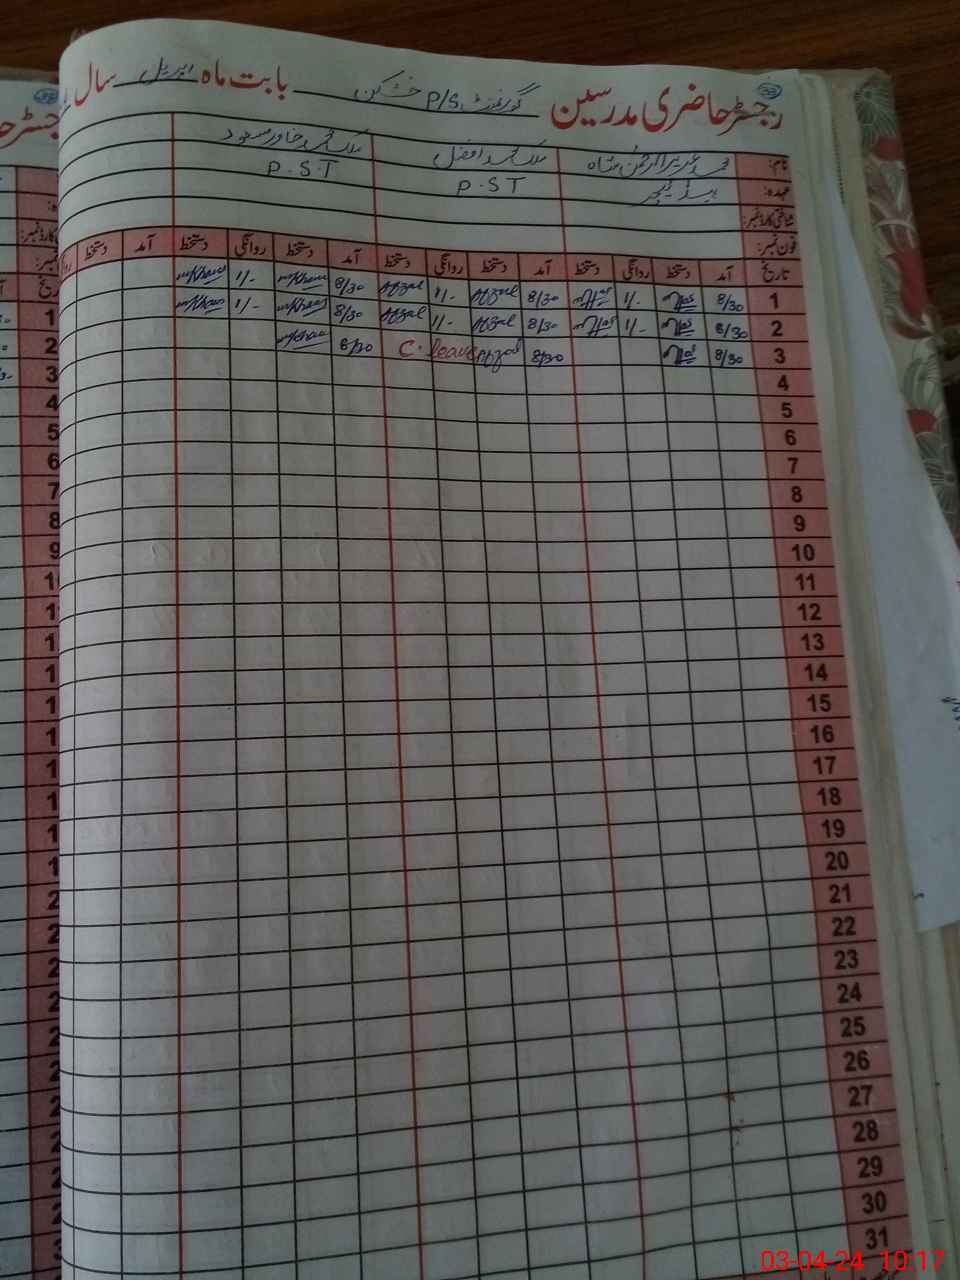 رجسٹر حاضری مدرسین گورنمنٹ P/S خشکن بابت ماہ اپریل سال
نام: محمد عزیز الرحمن شاہ ملک محمد افضل ملک محمد خاور مسعود
عہدہ: ہیڈ ٹیچر P.ST P.S.T
شناختی کارڈ نمبر:
فون نمبر:
تاریخ آمد دستخط روانگی دستخط آمد دستخط روانگی دستخط آمد دستخط روانگی دستخط آمد دستخط
1 8/30 1/- 8/30 Afzal 1/- Afzal 8/30 1/-
2 8/30 1/- 8/30 Afzal 1/- Afzal 8/30 1/-
3 8/30 8/30 Afzal C. leave 8/30
4
5
6
7
8
9
10
11
12
13
14
15
16
17
18
19
20
21
22
23
24
25
26
27
28
29
30
31
03-04-24 10:17